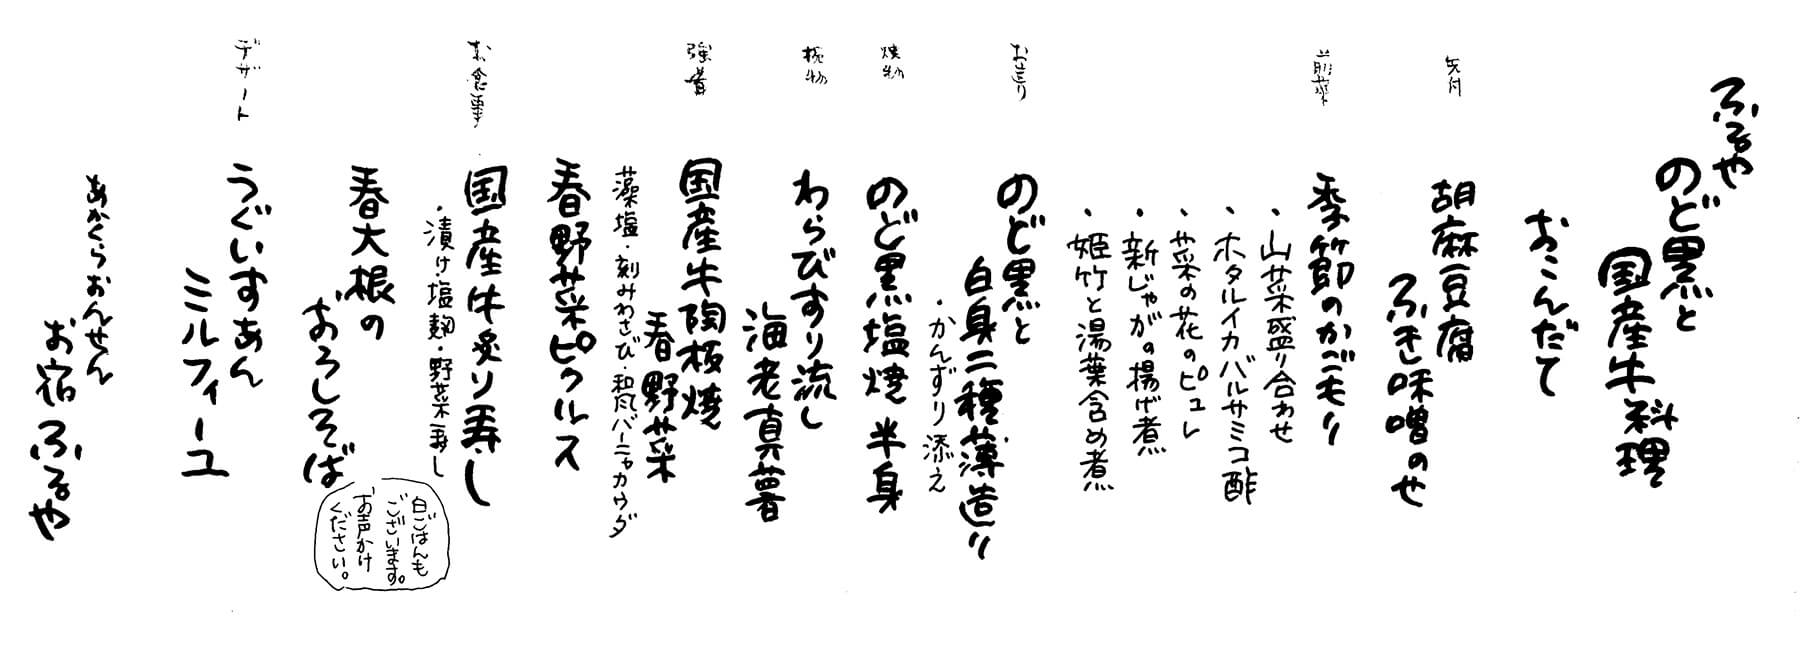 ふるや
のど黒と
国産牛料理
おこんだて
先付
胡麻豆腐
ふき味噌のせ
前菜
季節のかごモリ
・山菜盛り合わせ
・ホタルイカバルサミコ酢
・菜の花のピュレ
・新じゃがの揚げ煮
・姫竹と湯葉含め煮
お造り
のど黒と
白身二種薄造り
・かんずり添え
焼物
のど黒塩焼半身
椀物
わらびすり流し
海老真薯
強肴
国産牛陶板焼
春野菜
藻塩・刻みわさび・和風バーニャカウダ
春野菜ピクルス
お食事
国産牛炙り寿し
・漬け・塩麹・野菜寿し
春大根の
おろしそば
白ごはんも
ございます。
お声かけ
ください。
デザート
うぐいすあん
ミルフィーユ
あかくらおんせん
お宿ふるや